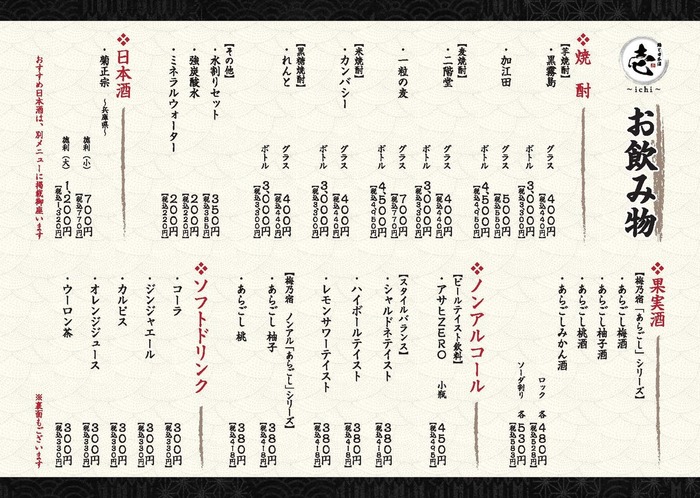 壱
~ichi~
お飲み物
❖焼酎
【芋焼酎】
・黒霧島 グラス 400円【税込440円】
ボトル 3,000円【税込3,300円】
・加江田 グラス 500円【税込550円】
ボトル 4,500円【税込4,950円】
【麦焼酎】
・二階堂 グラス 400円【税込440円】
ボトル 3,000円【税込3,300円】
・一粒の麦 グラス 700円【税込770円】
ボトル 4,500円【税込4,950円】
【米焼酎】
・カンバシー グラス 400円【税込440円】
ボトル 3,000円【税込3,300円】
【黒糖焼酎】
・れんと グラス 400円【税込440円】
ボトル 3,000円【税込3,300円】
【その他】
・水割りセット 350円【税込385円】
・強炭酸水 200円【税込220円】
・ミネラルウォーター 200円【税込220円】
❖日本酒
・菊正宗 ～兵庫県～ 徳利（小） 700円【税込770円】
徳利（大） 1,200円【税込1,320円】
おすすめ日本酒は、別メニューに掲載御座います
❖果実酒
【梅乃宿「あらごし」シリーズ】
・あらごし梅酒
・あらごし柚子酒
・あらごし桃酒
・あらごしみかん酒
ロック 各 480円【税込528円】
ソーダ割り 各 530円【税込583円】
❖ノンアルコール
【ビールテイスト飲料】
・アサヒZERO 小瓶 450円【税込495円】
【スタイルバランス】
・シャルドネテイスト 380円【税込418円】
・ハイボールテイスト 380円【税込418円】
・レモンサワーテイスト 380円【税込418円】
【梅乃宿 ノンアル「あらごし」シリーズ】
・あらごし 柚子 380円【税込418円】
・あらごし 桃 380円【税込418円】
❖ソフトドリンク
・コーラ 300円【税込330円】
・ジンジャエール 300円【税込330円】
・カルピス 300円【税込330円】
・オレンジジュース 300円【税込330円】
・ウーロン茶 300円【税込330円】
※裏面もございます